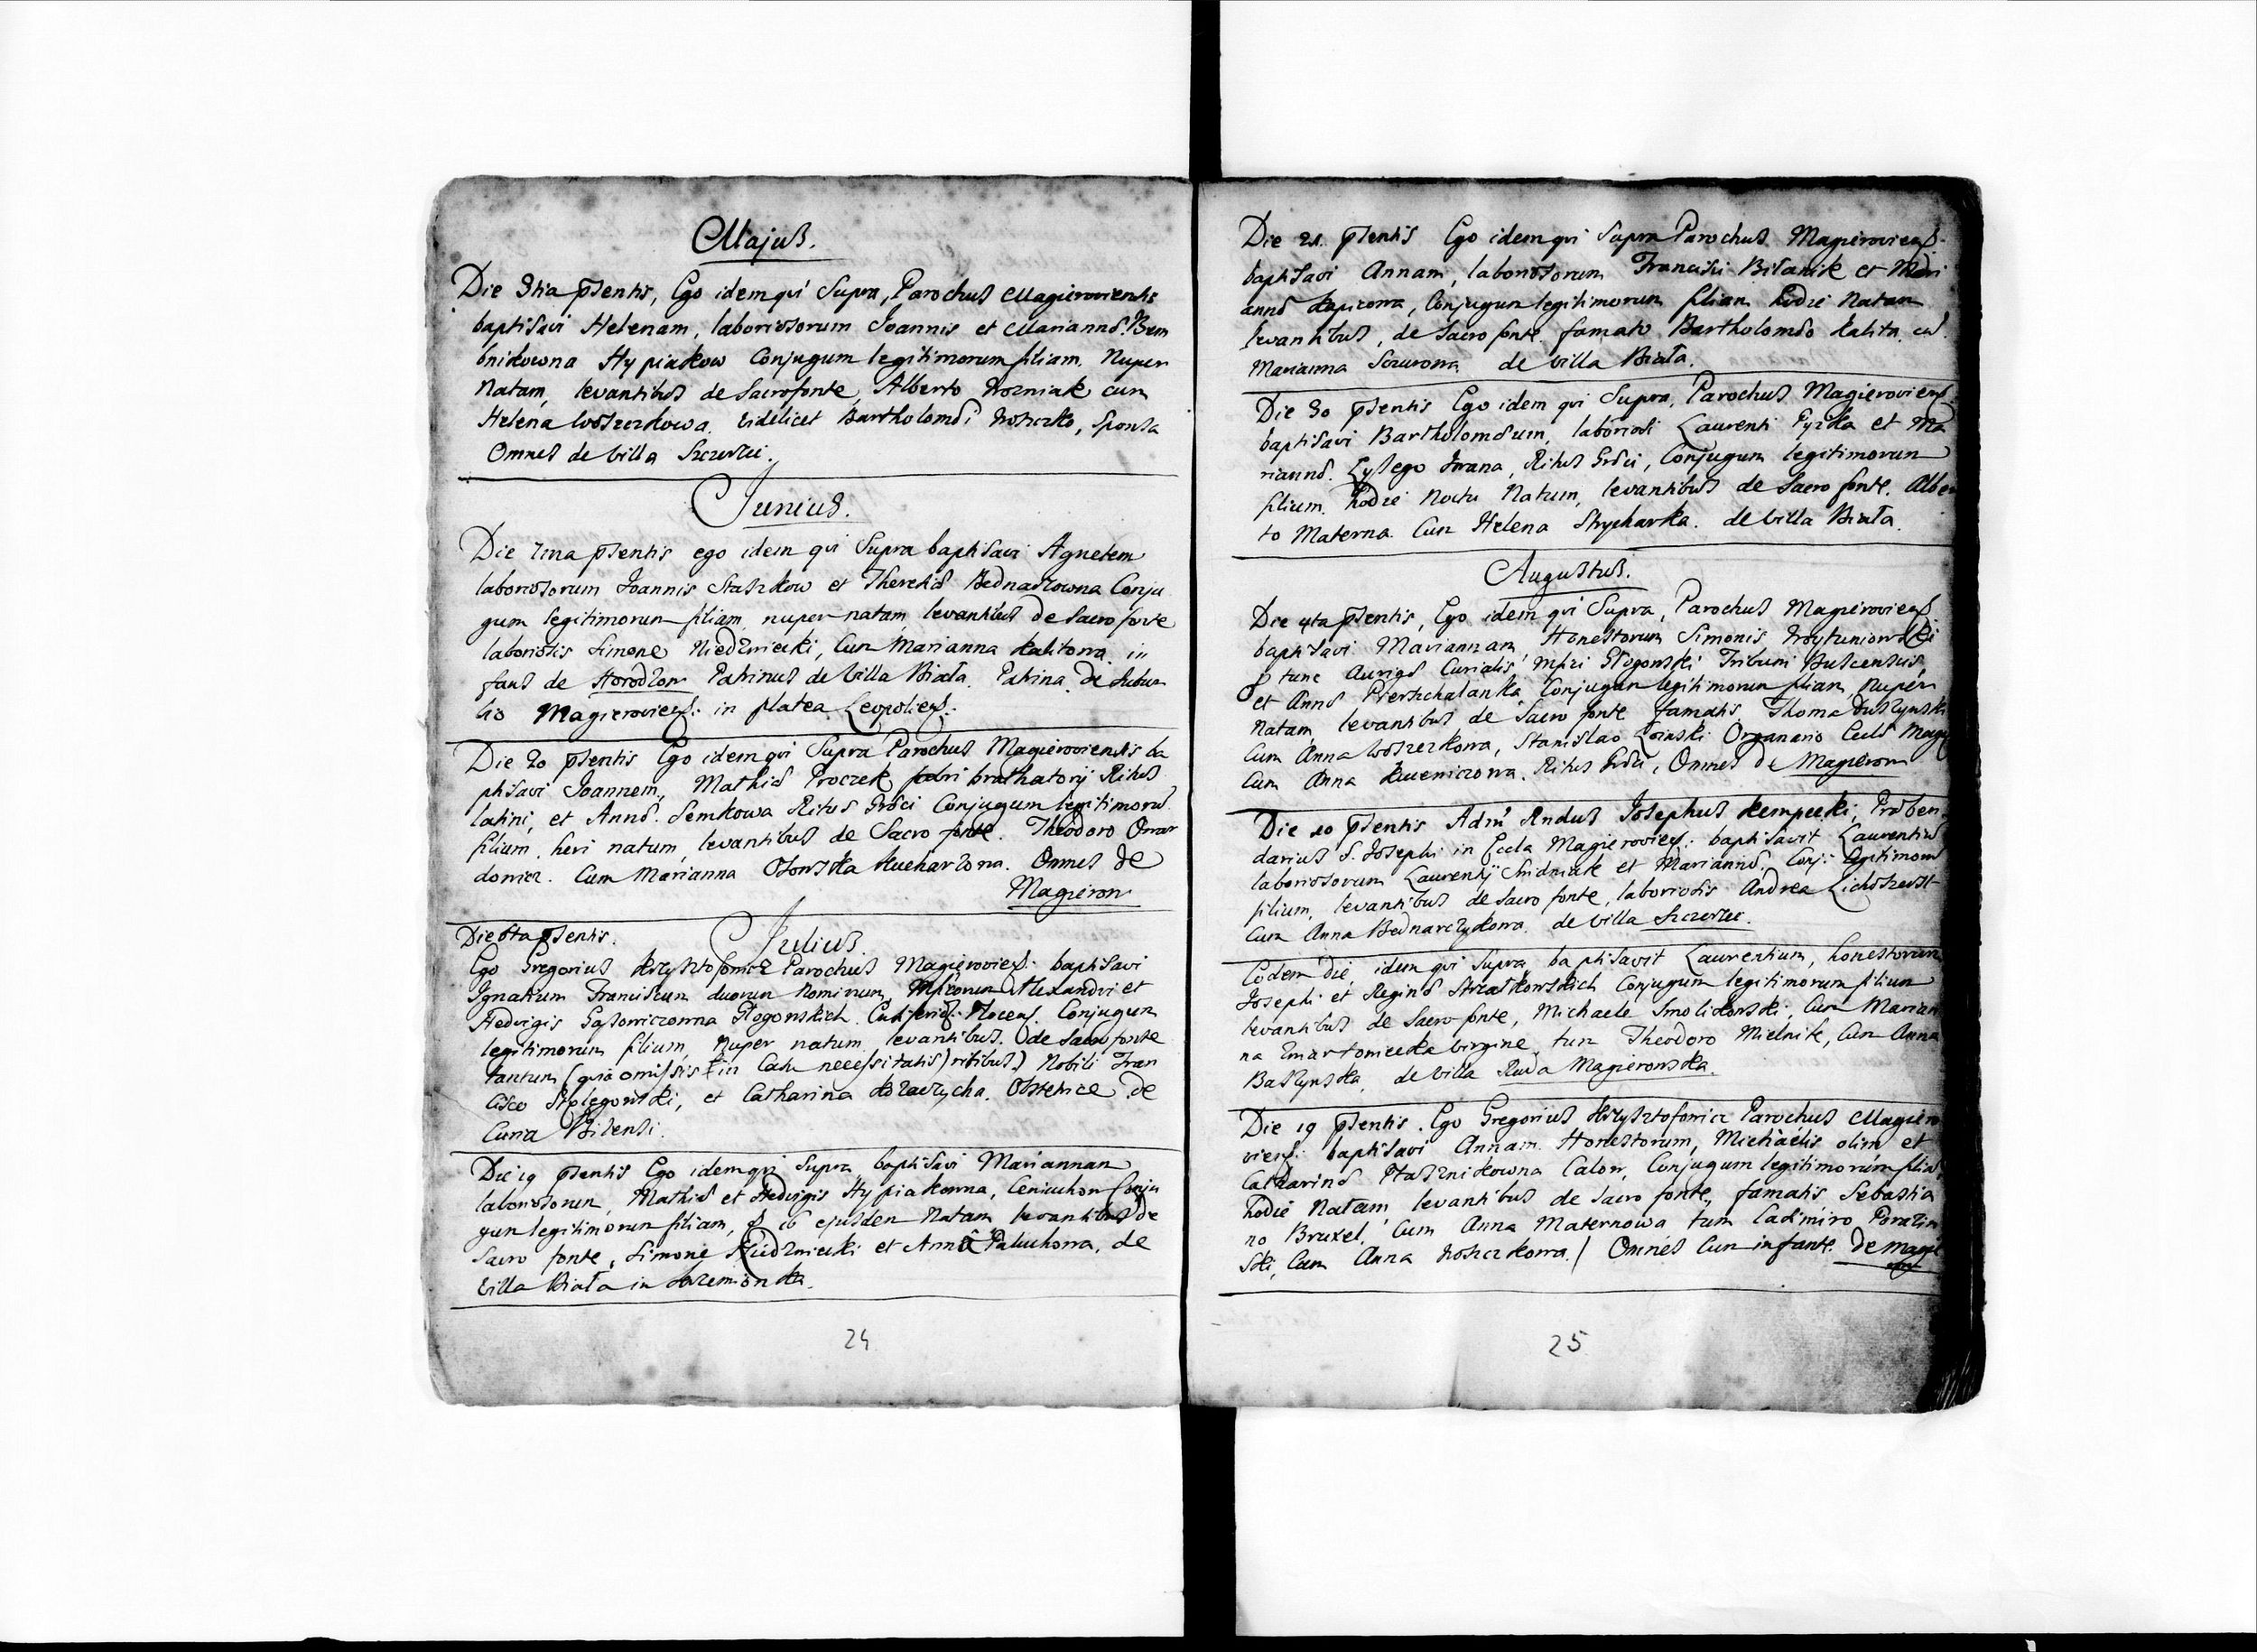 Majus.
Die 3tia pSentis, Ego idem qui Supra, Parochus Magieroviensis
baptisavi Helenam, laboriosorum Joannis et Mariannæ Bem
bnikowna Hypiakow Conjugum legitimorum filiam. Nuper
Natam, levantibus de Sacro fonte, Alberto Wozniak cum
Helena Woszczkowa. Videlicet Bartholomæi Woszczko, Sponsa
Omnes de villa Szczerzec.
Junius.
Die 7ma pSentis ego idem qui Supra baptisavi Agnetem
laboriosorum Joannis Staszkow et Theresiæ Bednarzowna Conju
gum legitimorum filiam, nuper natam, levantibus de Sacro fonte
laboriosis Simone Niedzwiecki, Cum Marianna Kalitowa. in
fans de Horodzow Patrinus de villa Biała. Patrina de Subur
bio Magierovies: in platea Leopolies:
Die 20 pSentis Ego idem qui Supra Parochus Magieroviensis ba
ptisavi Joannem, Mathiæ Proczek brathatorij Ritus
latini, et Annæ Semkowa Ritus Græci Conjugum legitimoru
filium, heri natum, levantibus de Sacro fonte. Theodoro
dowicz. Cum Marianna Kucharzowa. Omnes de
Magierow
Die 6ta pSentis. Julius.
Ego Gregorius Krzysztofowicz Parochus Magierovies: baptisavi
Ignatium Franciscum duorum Nominum, Mficorum Alexandri et
Hedvigis Głogowskich Conjugum
legitimorum filium, Nuper natum, levantibus de Sacro fonte
tantum (quia omissis in Casu necessitatis) ritibus) Nobili Fran
cisco et Catharina Obstetrice de
Curia
Die 19 pSentis Ego idem qui Supra baptisavi Mariannam
laboriosorum, Mathiæ et Hedvigis Hypiakowna, Conju
gum legitimorum filiam, 16 ejusdem Natam, levantibus de
Sacro fonte, Simone Niedzwiecki et Anna Paluchowa, de
villa Biała in
24
Die 21. pSentis Ego idem qui Supra Parochus Magierovies:
baptisavi Annam, laboriosorum Francisci Bilanik et Mari
annæ Conjugum legitimorum filiam hodie Natam
levantibus, de Sacro fonte. famato Bartholomæo Kalita. cu
Marianna de villa Biała.
Die 30 pSentis Ego idem qui Supra, Parochus Magierovies
baptisavi Bartholomæum, laboriosi Laurenti et Ma
riannæ. Lysego Iwana, Ritus Græci, Conjugum legitimorum
filium. hodie Noctu Natum, levantibus de Sacro fonte. Alber
to Materna. Cum Helena Strycharka. de villa Biała.
Augustus.
Die 4ta pSentis, Ego idem qui Supra, Parochus Magierovies
baptisavi Mariannam, Honestorum Simonis
tunc Aurigæ Curialis Mfici Głogowski Tribuni Buscensis,
et Annæ Conjugum legitimorum filiam, Nuper
Natam, levantibus de Sacro fonte famatis Thoma
Cum Anna Woszczkowa, Stanislao Organario Eccls Magi
Cum Anna Ritus Græci, Omnes de Magierow
Die 10 pSentis Adm Rndus Josephus Kempecki, Præben
darius S. Josephi in Eccla Magierovies: baptisavit Laurentiu
laboriosorum Laurentij Smidniak et Mariannæ. Conj: legitimoru
filium, levantibus de Sacro fonte, laboriosis Andrea
Cum Anna Bednarczykowa. de villa Szczerzec.
Eodem die, idem qui Supra baptisavit Laurentium, honestorum
Josephi et Reginæ Conjugum legitimorum filium
levantibus de Sacro fonte, Michaele Smolikowski, Cum Marian
na virgine, tum Theodoro Mielnik, Cum Anna
de villa Ruda Magierowska.
Die 19 pSentis. Ego Gregorius Krzysztofowicz Parochus Magiero
vies: baptisavi Annam. Honestorum, Michaelis olim et
Catharinæ Ptasznikowna Calow, Conjugum legitimorum filia
hodie Natam levantibus de Sacro fonte, famatis Sebastia
no Bruxel, Cum Anna Maternowa tum Cadimiro
ski, Cum Anna Woszczkowa. / Omnes Cum infante. de Magie
25